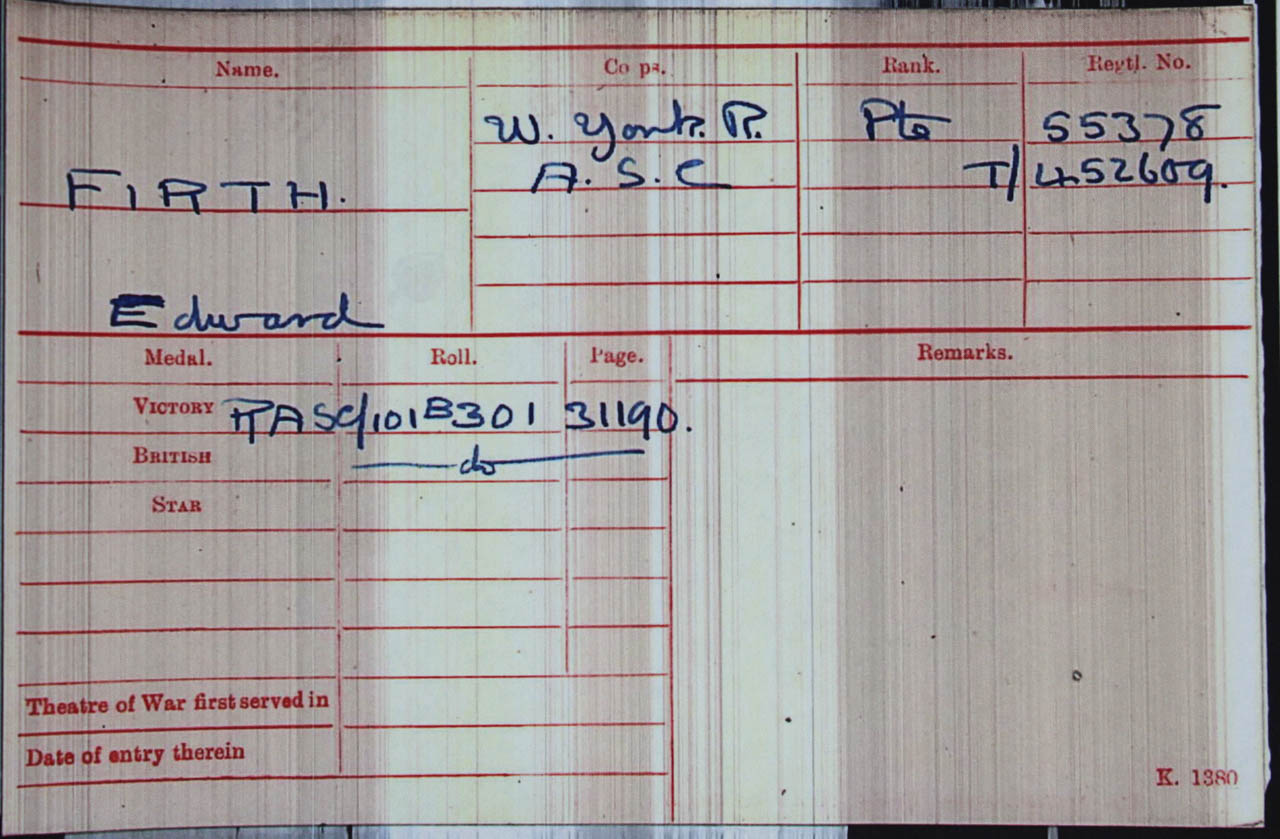 Name. Corps. Rank. Regtl. No.
W. York. R. Pte 55378
A. S. C T/452609.
FIRTH.
Edward
Medal. Roll. Page. Remarks.
VICTORY RASC/101B301 31190.
BRITISH do
STAR
Theatre of War first served in
Date of entry therein
K. 1380